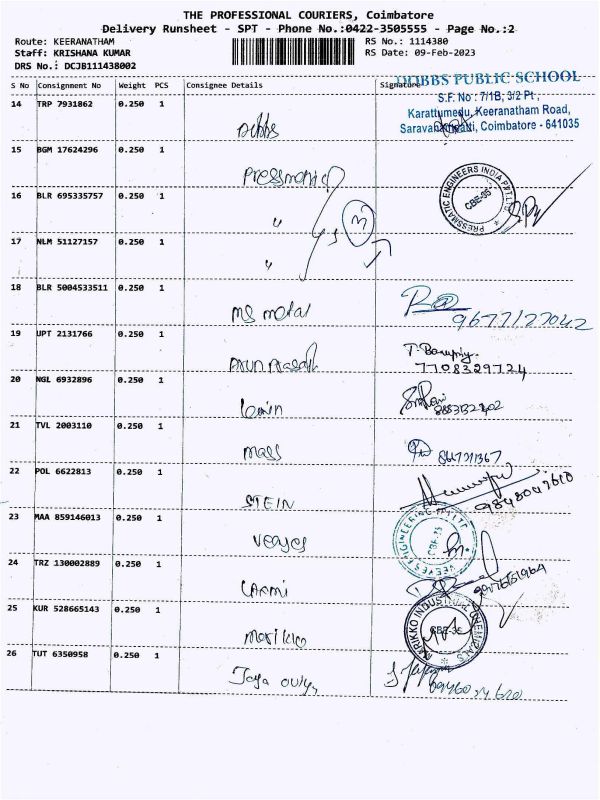 THE PROFESSIONAL COURIERS, Coimbatore
Delivery Runsheet - SPT - Phone No.:0422-3505555 - Page No.:2
Route: KEERANATHAM RS No.: 1114380
Staff: KRISHANA KUMAR RS Date: 09-Feb-2023
DRS No.: DCJB111438002
S No Consignment No Weight PCS Consignee Details Signature
DOBBS PUBLIC SCHOOL
S.F. No : 7/1B, 3/2 Pt ,
Karattumedu, Keeranatham Road,
Coimbatore - 641035
14 TRP 7931862 0.250 1
Dobbs
15 BGM 17624296 0.250 1
Pressmatic
PRESSMATIC ENGINEERS INDIA PVT.LTD
CBE-35
16 BLR 695335757 0.250 1
"
17 NLM 51127157 0.250 1
"
18 BLR 5004533511 0.250 1
MS metal
9677127042
19 UPT 2131766 0.250 1
Arun Prasath
7708329724
20 NGL 6932896 0.250 1
21 TVL 2003110 0.250 1
mass
22 POL 6622813 0.250 1
STEIN
23 MAA 859146013 0.250 1
Veeyes
VEEYES ENGINEERING
24 TRZ 130002889 0.250 1
Laxmi
25 KUR 528665143 0.250 1
Marikko
MARIKKO INDUSTRIAL CHEMICALS
CBE-35
26 TUT 6350958 0.250 1
Jaya